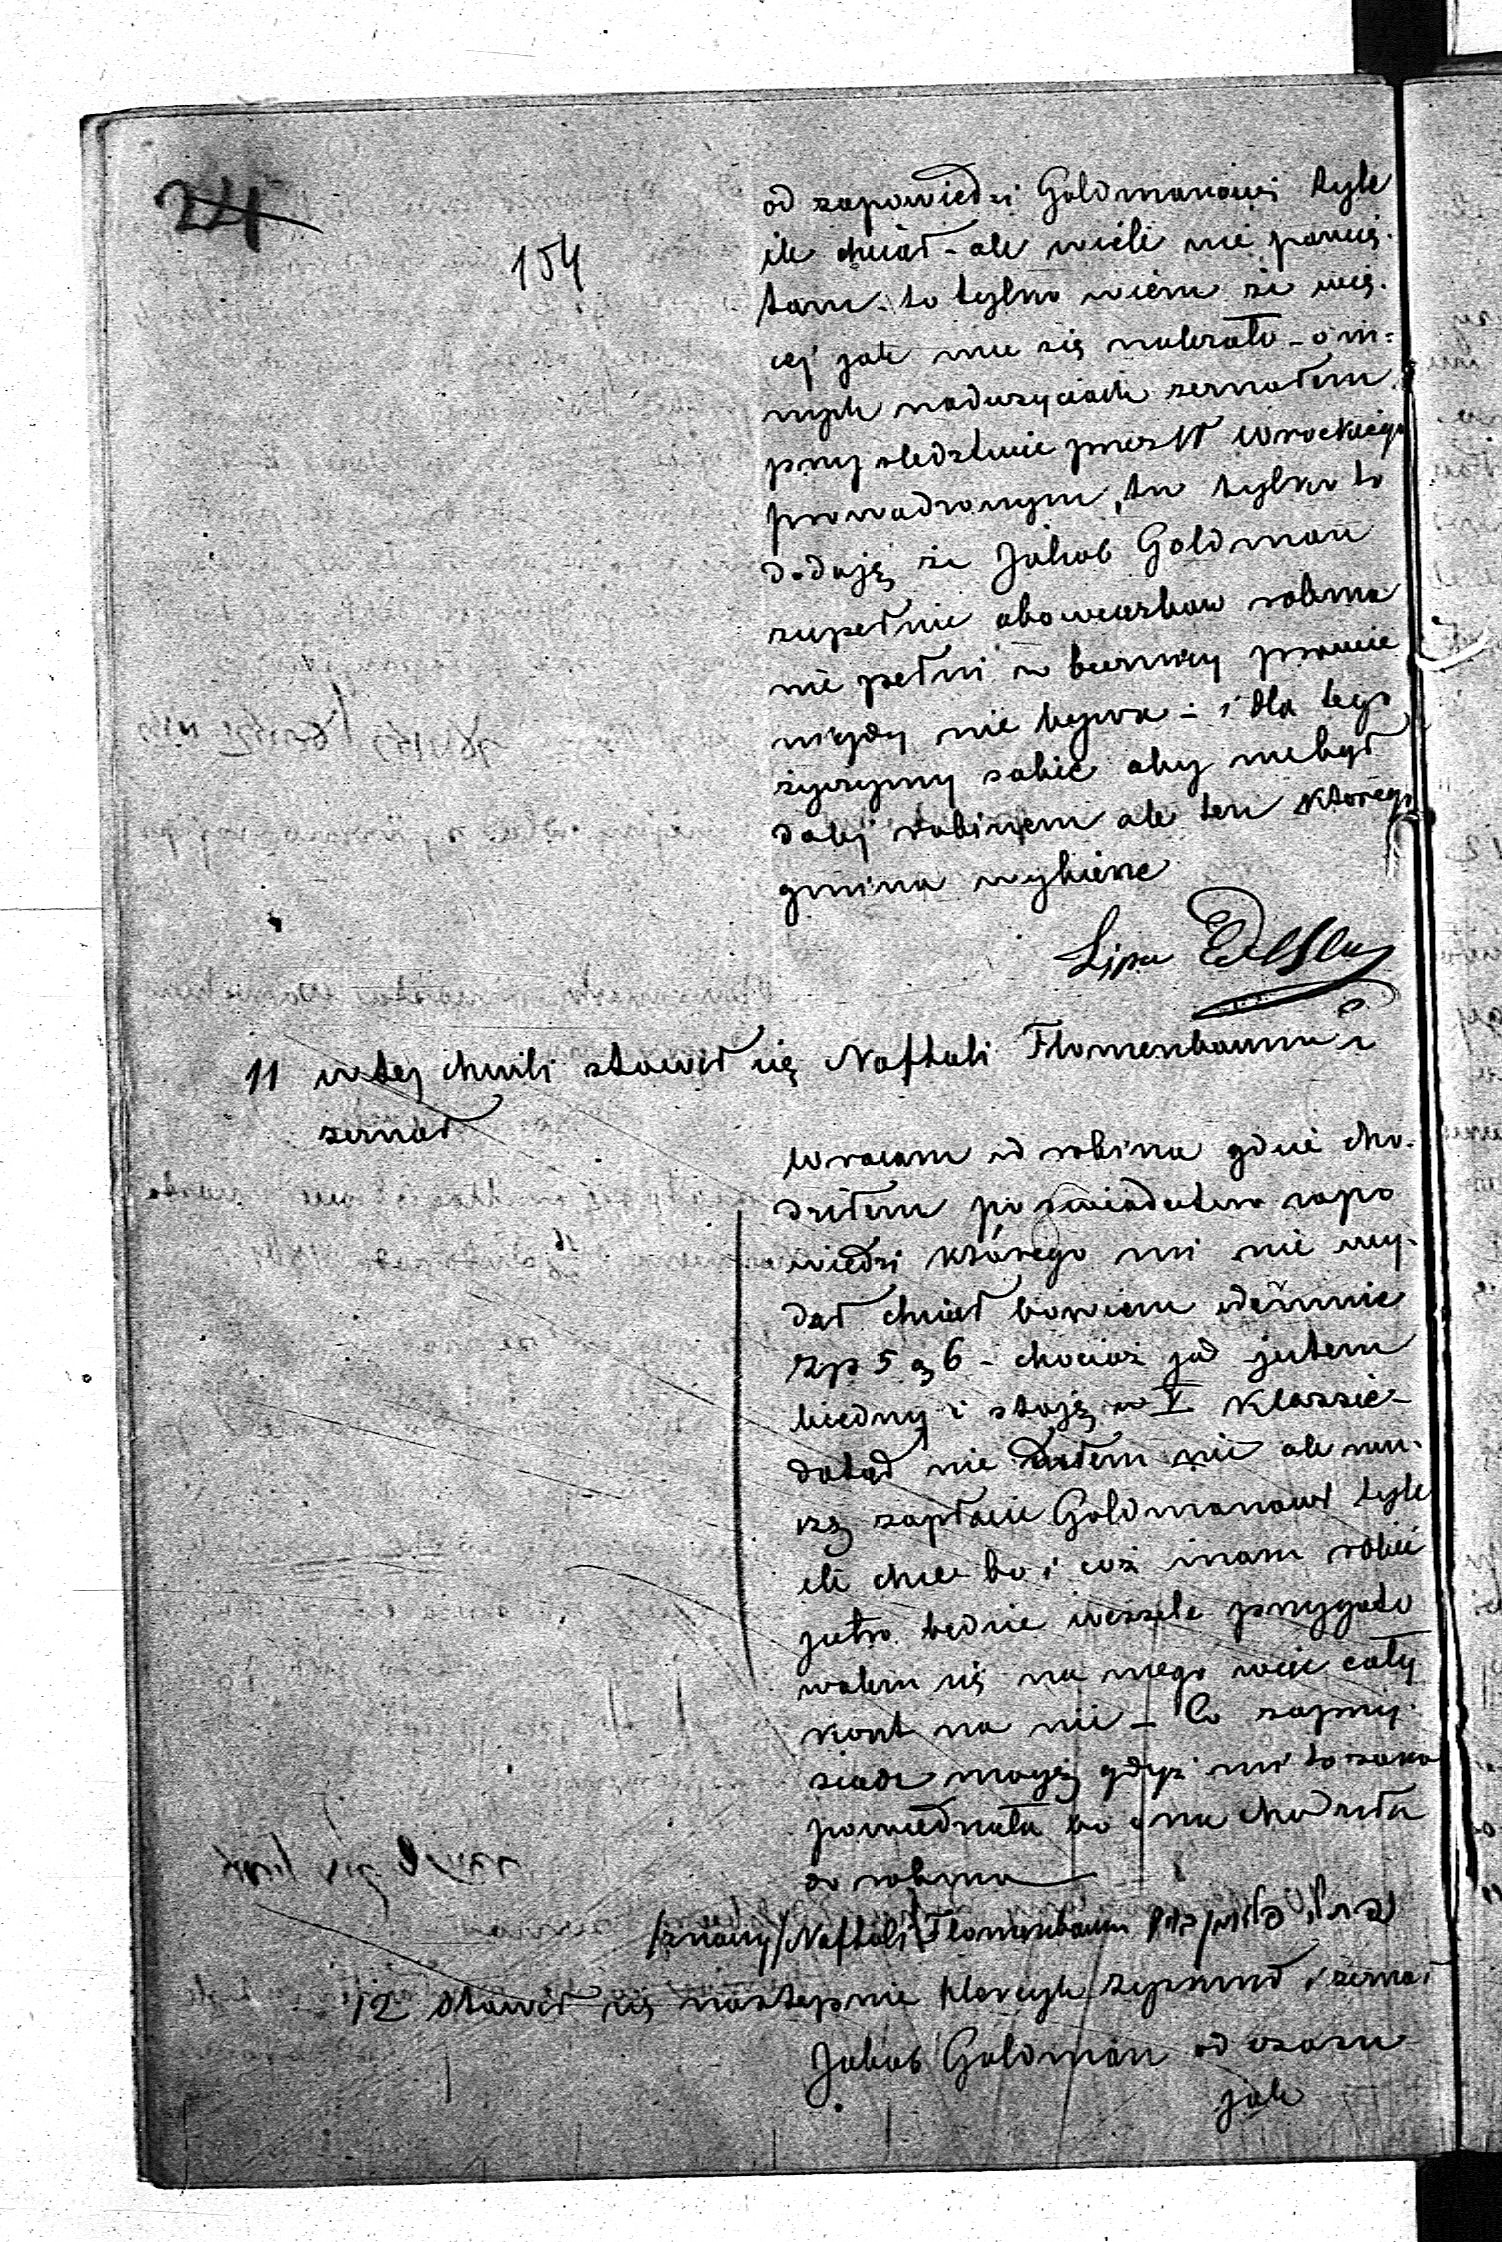 24
154
od zapowiedzi Goldmanowi tyle
ile chciał - ale wiele nie pamię-
tam - to tylko wiem że wię-
cej jak mu się należało - o in-
nych nadużyciach zeznałem
przy śledztwie przez W Wrockiego
prowadzonym, tu tylko to
dodaję że Jakob Goldman
zupełnie obowiązków rabina
nie pełni w bużnicy prawie
nigdy nie bywa - i dla tego
życzymy sobie aby niebył
dalej rabinem ale ten którego
gmina wybierze
Lipa
11 w tej chwili stawił się Naftali Flomenbaum i
zeznał
Wracam od rabina gdzie cho-
dziłem po świadectwo zapo
wiedzi którego mi nie wy-
dał chciał bowiem odemnie
zp 5 g 6 - chociaż ja jestem
biedny i stoję w V klassie -
dotąd nie dałem nic ale mu-
szę zapłacić Goldmanowi tyle
ile chce bo i coż mam robić
jutro będzie wesele przygoto
wałem się na niego więc cały
koszt na nic - Co zaprzy-
siądz mogę gdyż mi to
powiedziała bo ona chodziła
do rabina
/znaczy/ Naftali Flomenbaum
12 Stawił się następnie zeznał
Jakob Goldman od czasu
jak